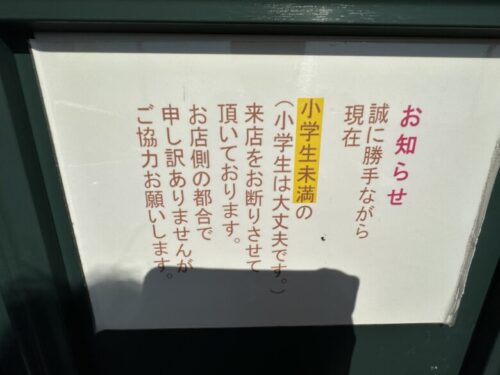 お知らせ
誠に勝手ながら
現在
小学生未満の
(小学生は大丈夫です。)
来店をお断りさせて
頂いております。
お店側の都合で
申し訳ありませんが
ご協力お願いします。